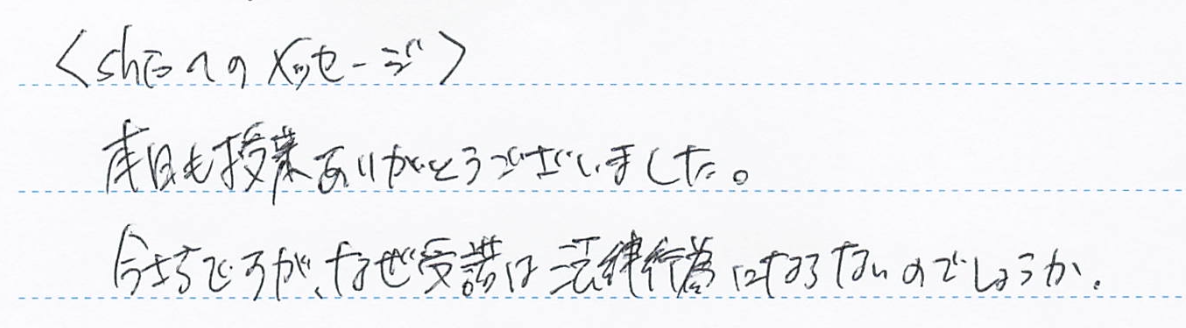 <shEへのメッセージ>
本日も授業ありがとうございました。
今さらですが、なぜ受諾は法律行為にならないのでしょうか.